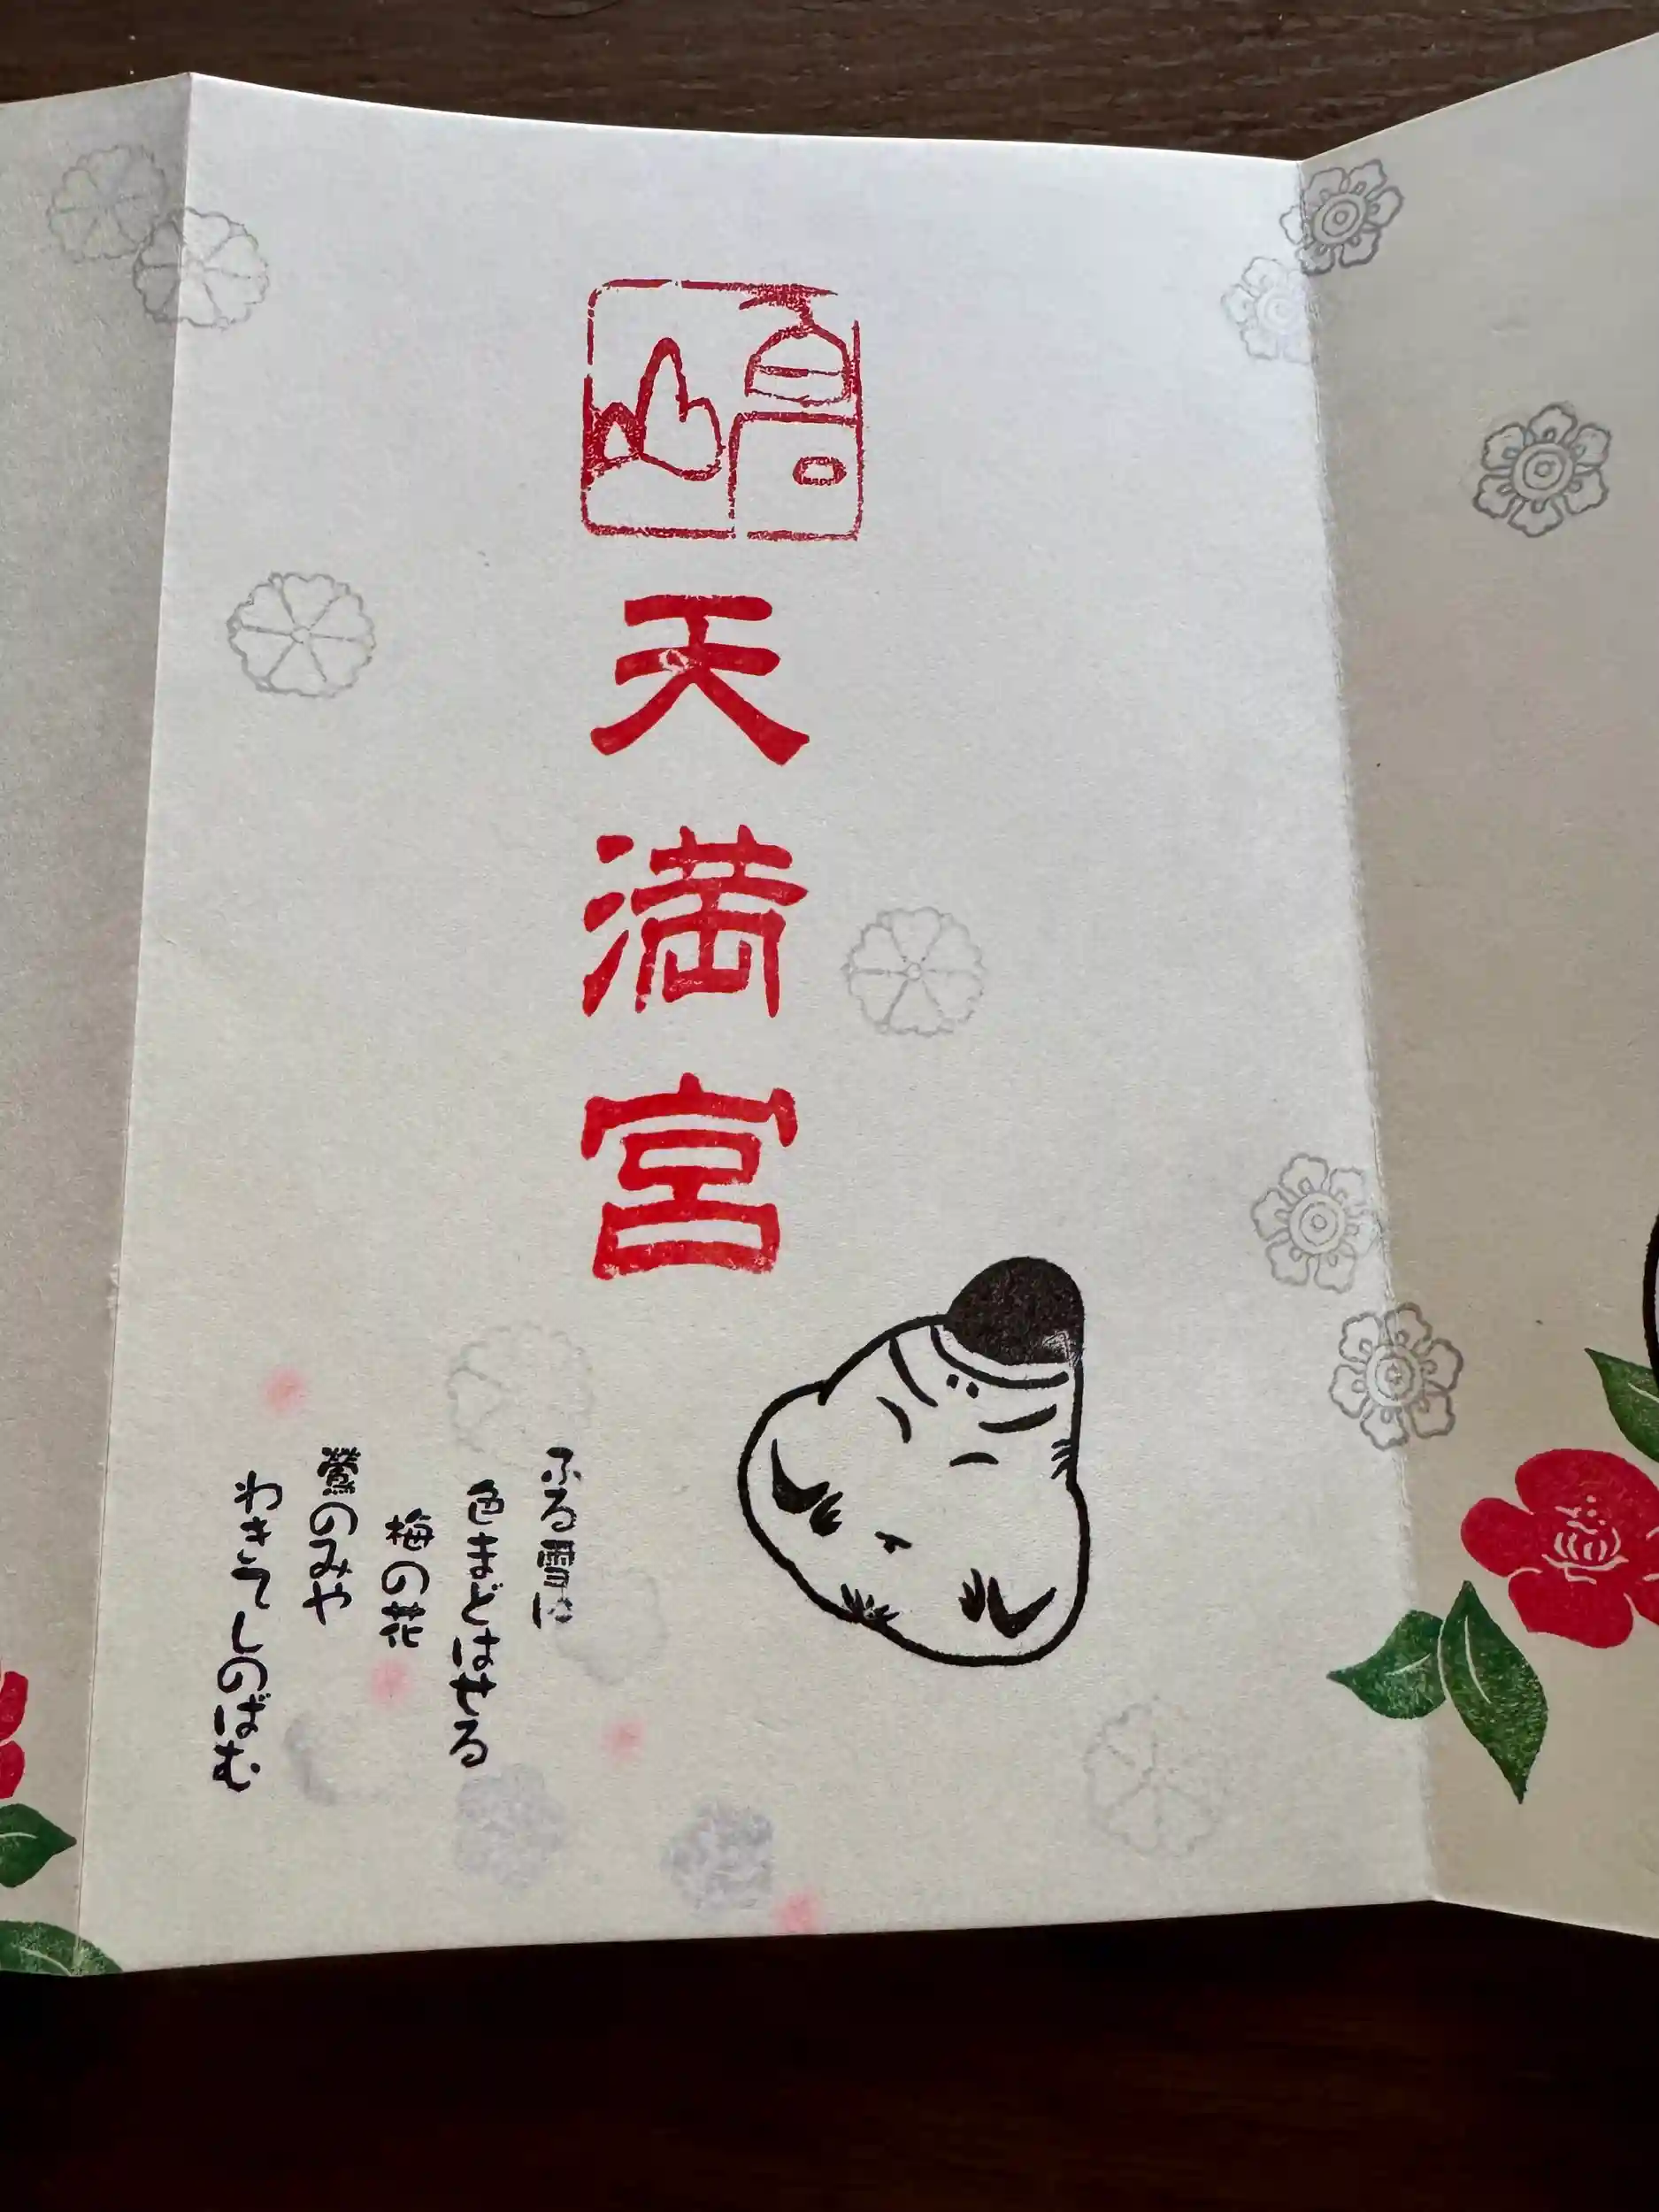 天満宮
ふる雪は
色まどはせる
梅の花
鶯のみや
わきてしのばむ